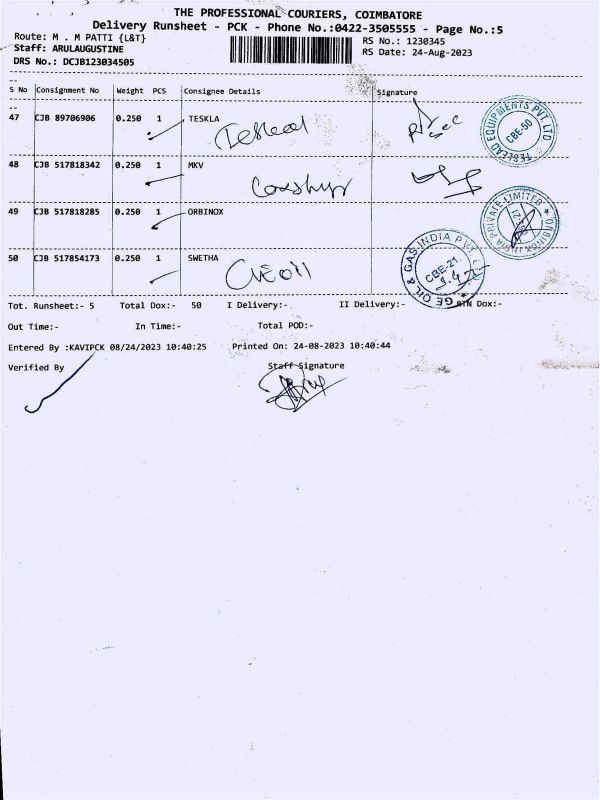 THE PROFESSIONAL COURIERS, COIMBATORE
Delivery Runsheet - PCK - Phone No.:0422-3505555 - Page No.:5
Route: M . M PATTI {L&T}
RS No.: 1230345
Staff: ARULAUGUSTINE
RS Date: 24-Aug-2023
DRS No.: DCJB123034505
S No Consignment No Weight PCS Consignee Details Signature
47 CJB 89706906 0.250 1 TESKLA
TESLEAD EQUIPMENTS PVT. LTD CBE-50
48 CJB 517818342 0.250 1 MKV
49 CJB 517818285 0.250 1 ORBINOX
ORBINOX INDIA PRIVATE LIMITED
50 CJB 517854173 0.250 1 SWETHA
GE OIL & GAS INDIA PVT. CBE-21.
Tot. Runsheet:- 5 Total Dox:- 50 I Delivery:- II Delivery:- RTN Dox:-
Out Time:- In Time:- Total POD:-
Entered By :KAVIPCK 08/24/2023 10:40:25 Printed On: 24-08-2023 10:40:44
Verified By Staff Signature